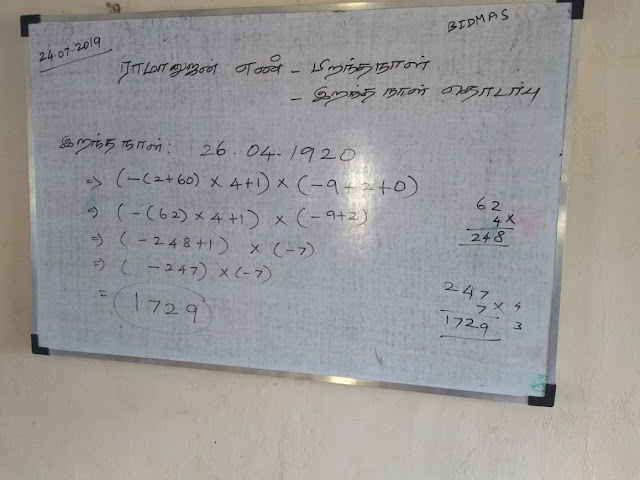 24.07.2019
BIDMAS
ராமானுஜன் எண் - பிறந்தநாள்
- இறந்த நாள் தொடர்பு
இறந்தநாள்: 26.04.1920
=> (-(2+60) × 4+1) × (-9+2+0)
=> (-(62) × 4+1) × (-9+2)
=> (-248+1) × (-7)
=> ( -247) × (-7)
= 1729
62
4×
248
247
7 × 4
1729 3